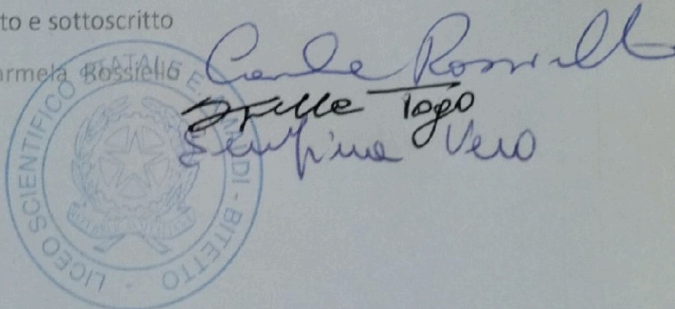 to e sottoscritto
armela Rossiello
Carmela Rossiello
Topo
Vero
LICEO SCIENTIFICO STATALE E. AMALDI - BITETTO -